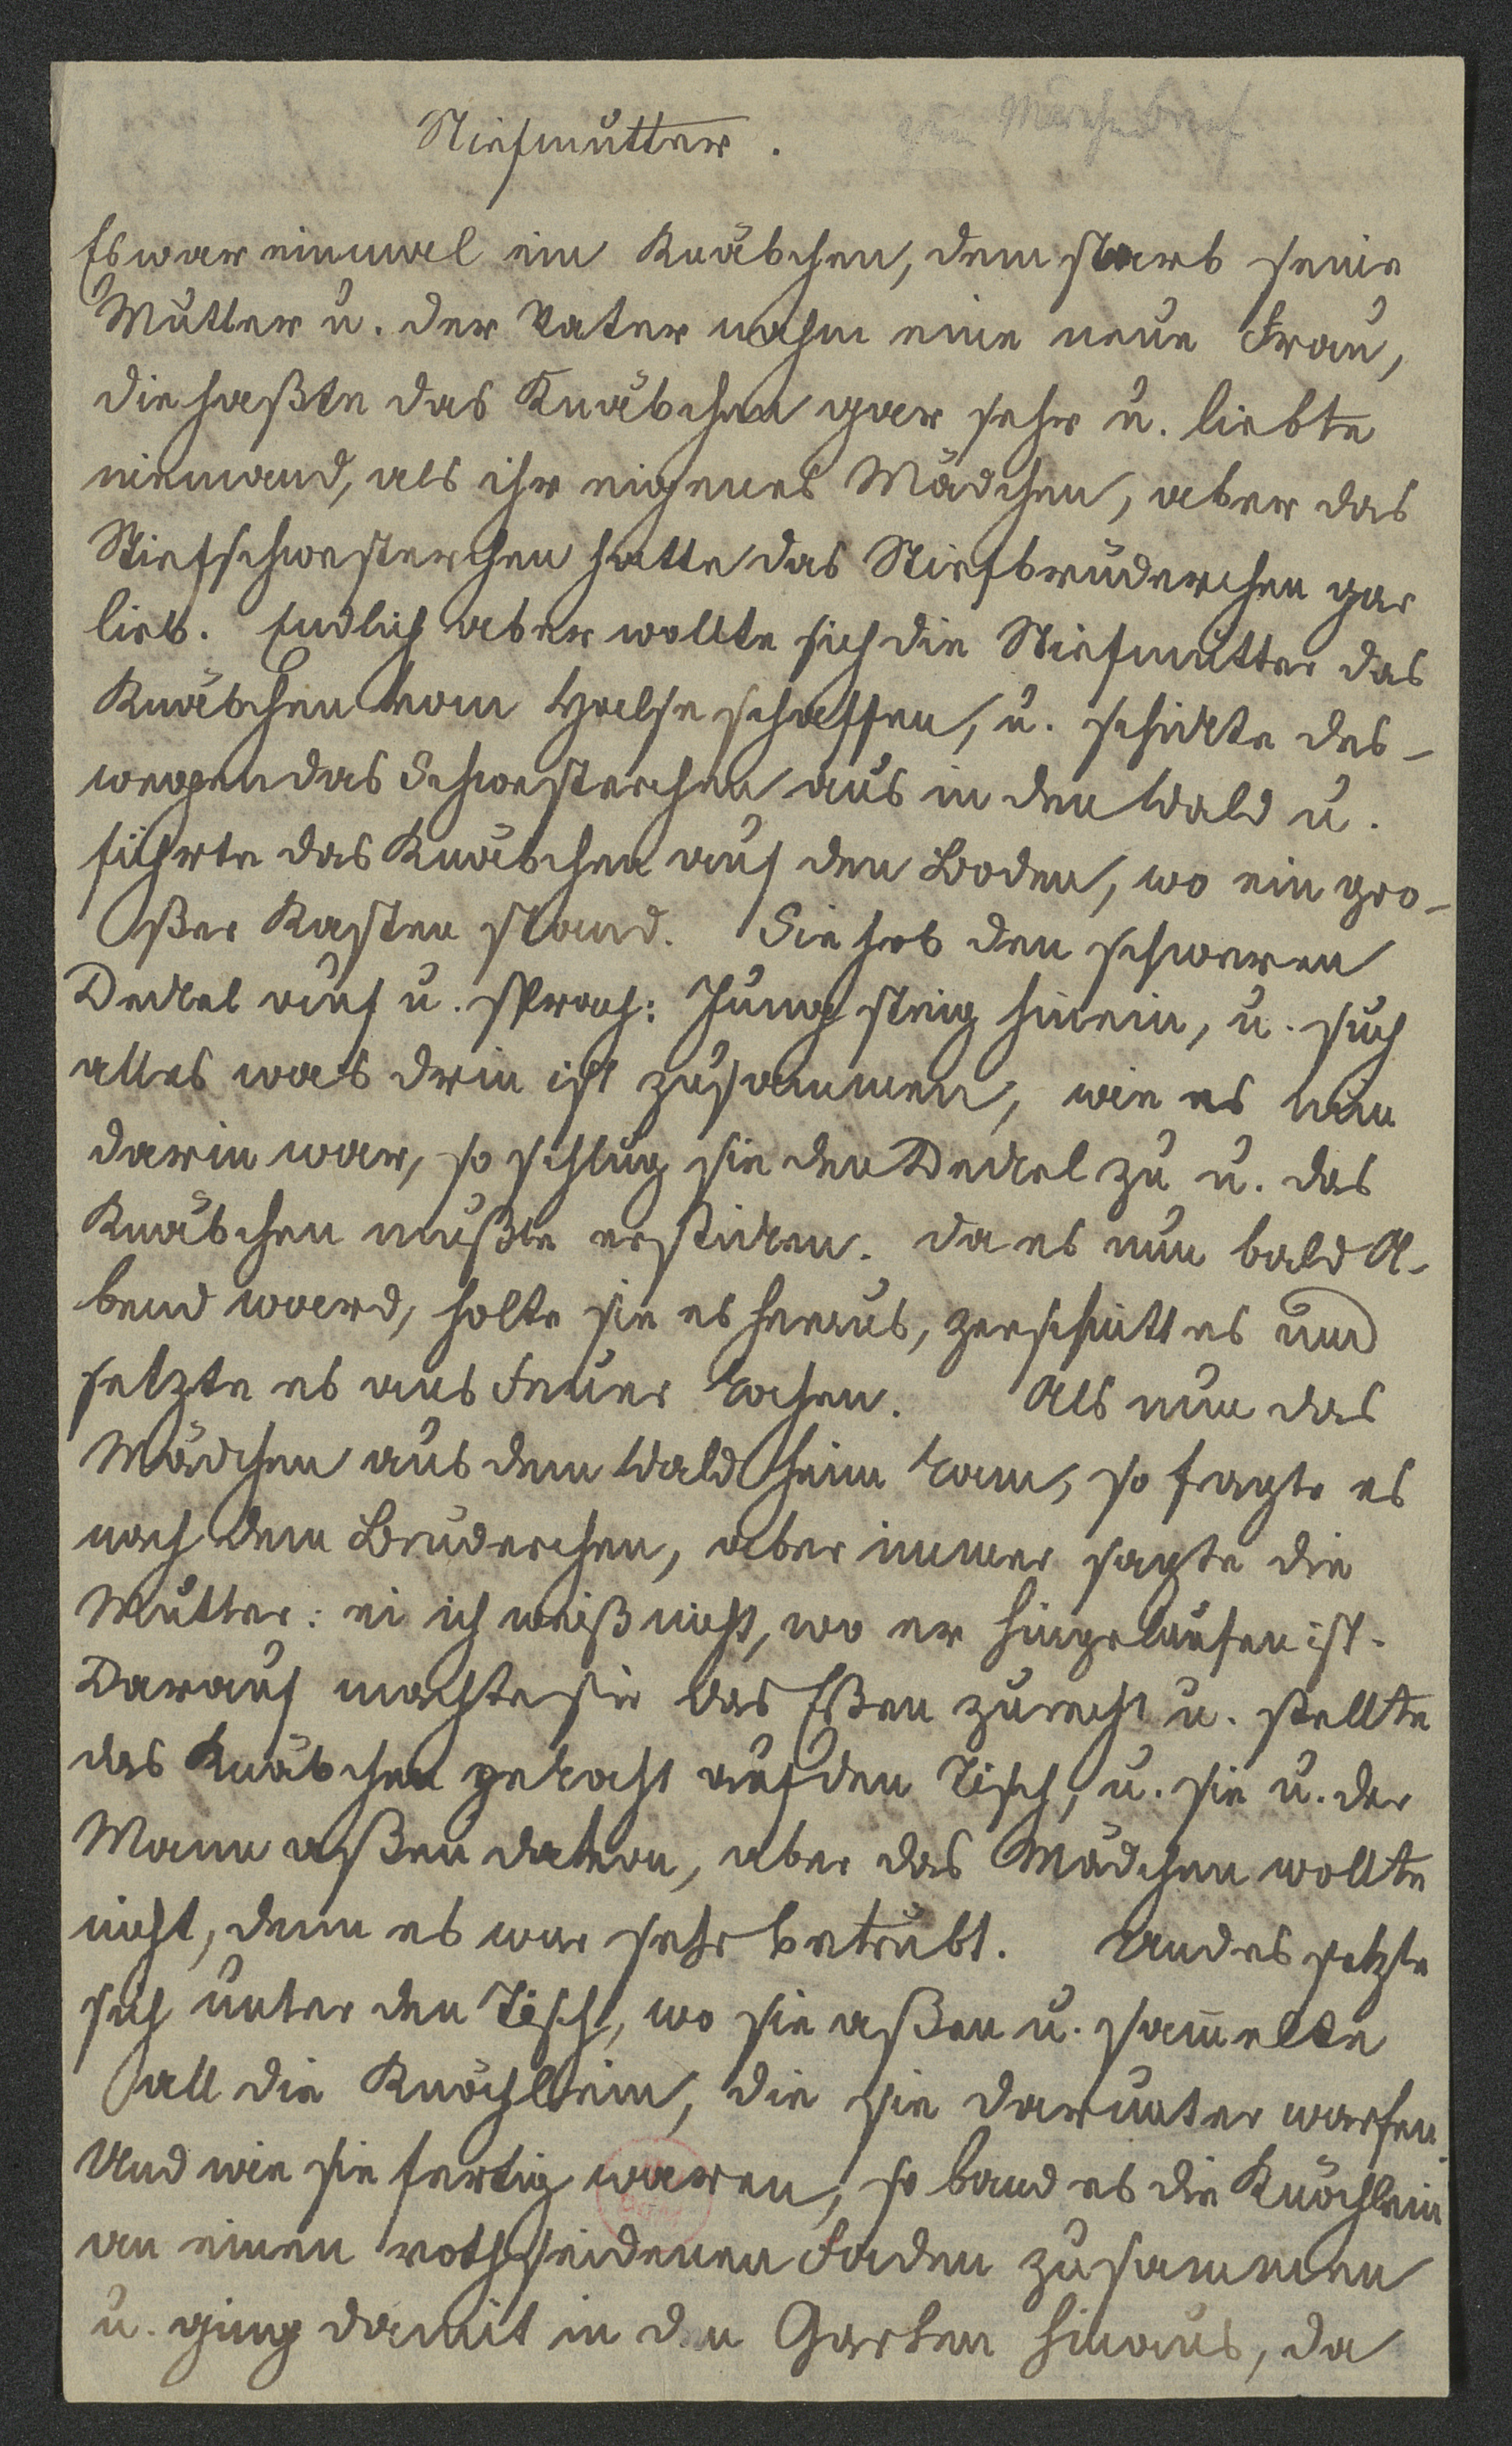 Märchenbrief
Stiefmutter.
Es war einmal ein Knäbchen, dem starb seine
Mutter u. der Vater nahm eine neue Frau,
die haßte das Knäbchen gar sehr u. liebte
niemand, als ihr eigenes Mädchen, aber das
Stiefschwesterchen hatte das Stiefbrüderchen gar
lieb. Endlich aber wollte sich die Stiefmutter das
Knäbchen vom Halse schaffen, u. schickte des-
wegen das Schwesterchen aus in den Wald u.
führte das Knäbchen auf den Boden, wo ein gro-
ßer Kasten stand. Sie hob den schweren
Deckel auf u. sprach: Jung steig hinein, u. such
alles was drin ist zusammen, wie es nun
darin war, so schlug sie den Deckel zu u. das
Knäbchen mußte ersticken. Da es nun bald A-
bend ward, holte sie es heraus, zerschnitt es und
setzte es ans Feuer kochen. Als nun das
Mädchen aus dem Wald heim kam, so fragte es
nach dem Brüderchen, aber immer sagte die
Mutter: ei ich weiß nicht, wo er hingelaufen ist.
Darauf machte sie das Eßen zurecht u. stellte
das Knäbchen gekocht auf den Tisch, u. sie u. der
Mann aßen davon, aber das Mädchen wollte
nicht, denn es war sehr betrübt. Und es setzte
sich unter den Tisch, wo sie aßen u. sam̄elte
all die Knöchlein, die sie darunter warfen.
Und wie sie fertig waren, so band es die Knöchlein
an einen rothseidenen Faden zusammen
u. ging damit in den Garten hinaus, da